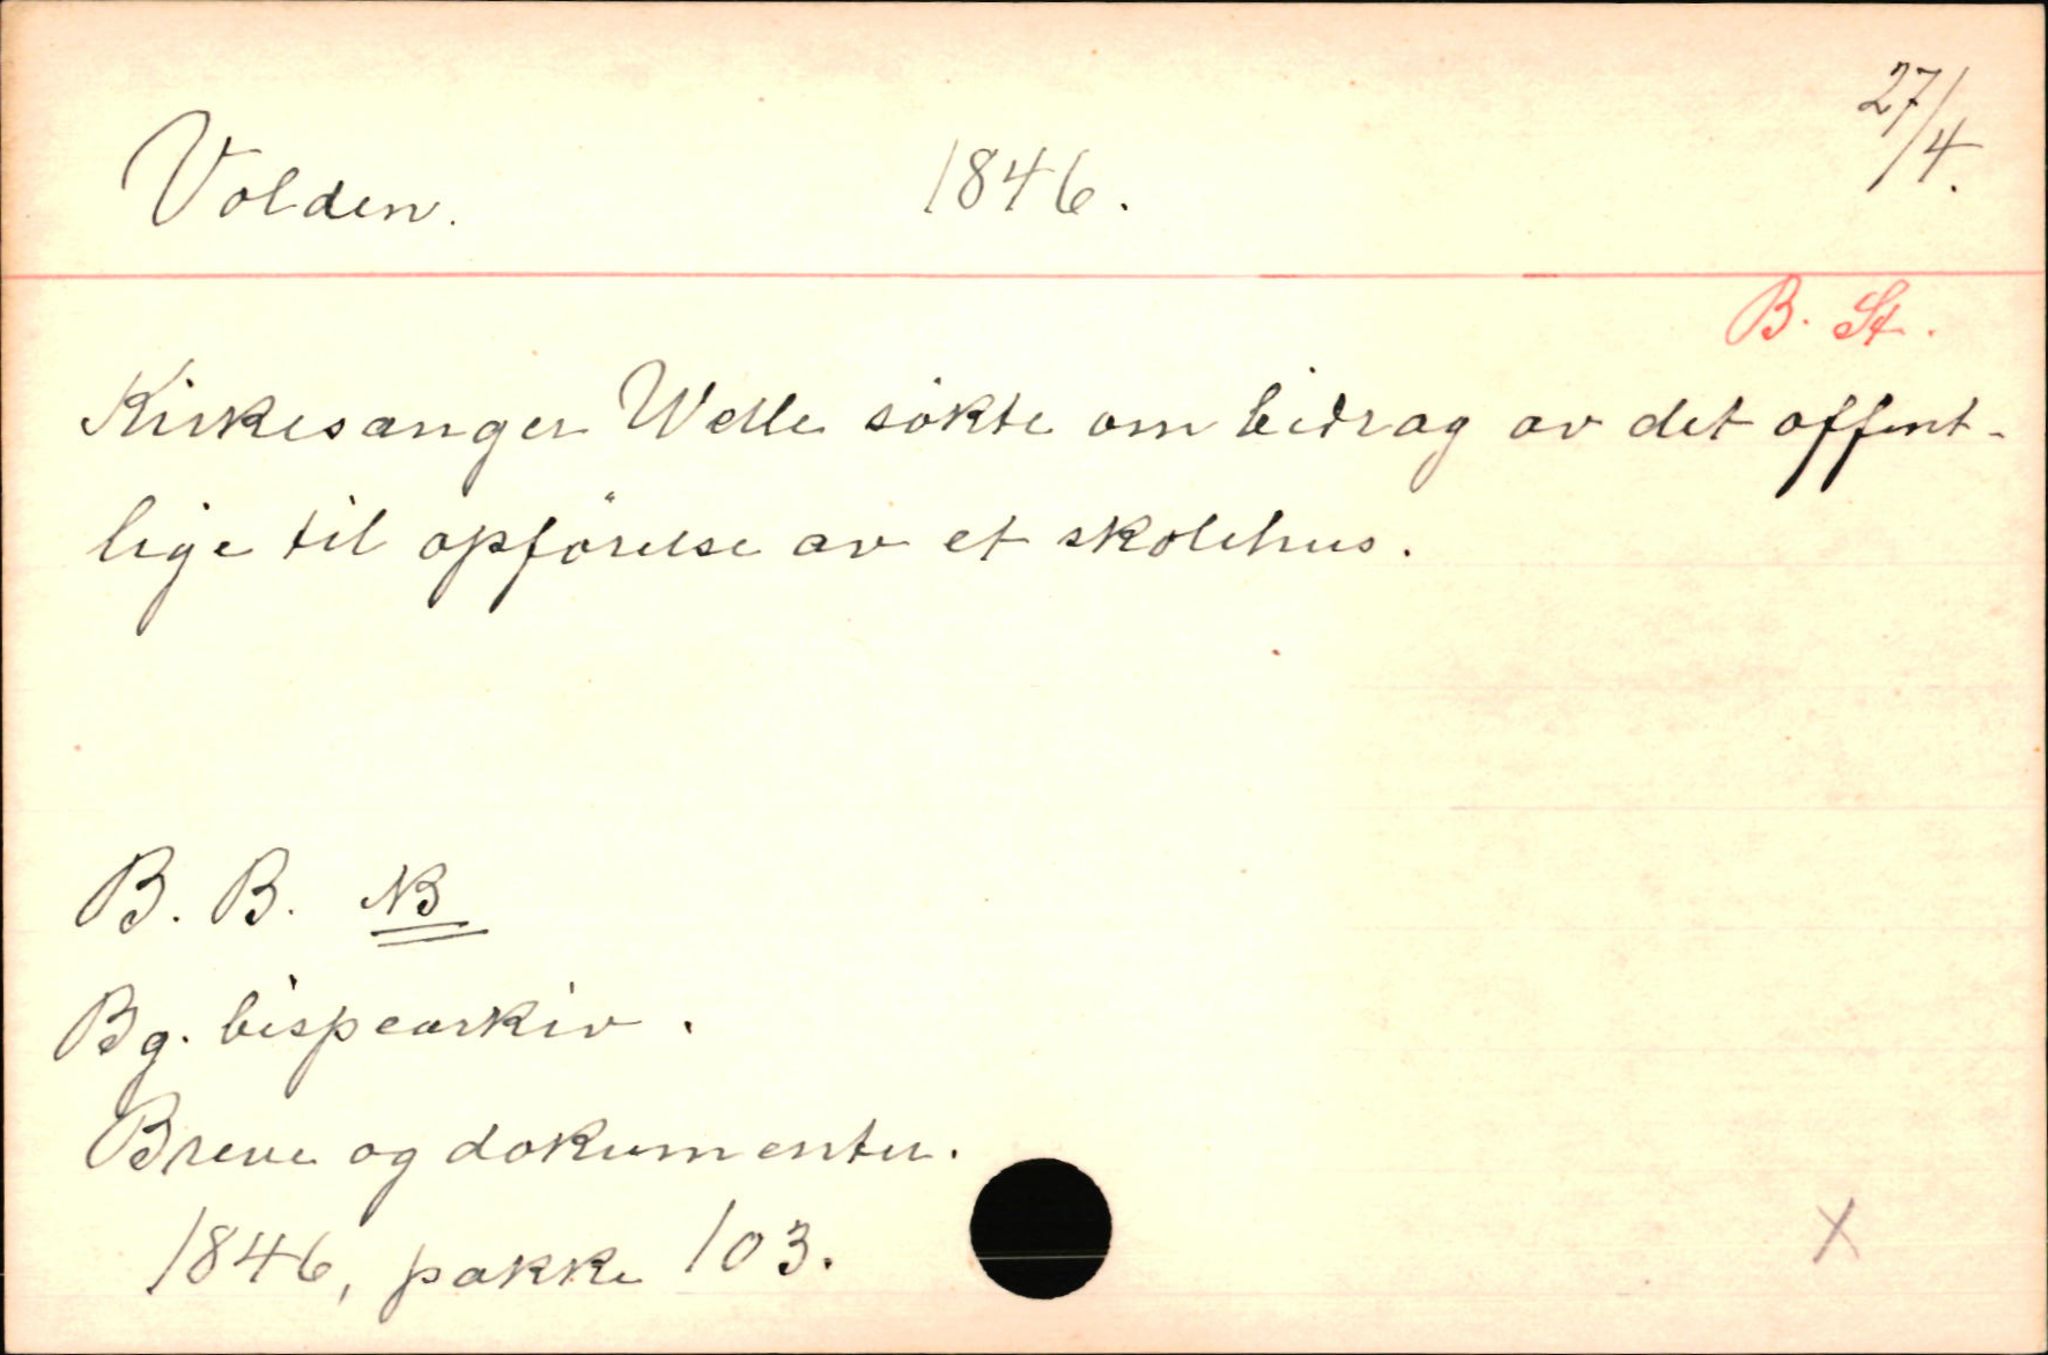 Volden. 1846. 27/4.
B. St.
Kirkesanger Welle sökte om bidrag av det offent-
lige til opförelse av et skolehus.
B. B. NB
Bg. bispearkiv.
Breve og dokumenter.
1846, pakke 103.
X